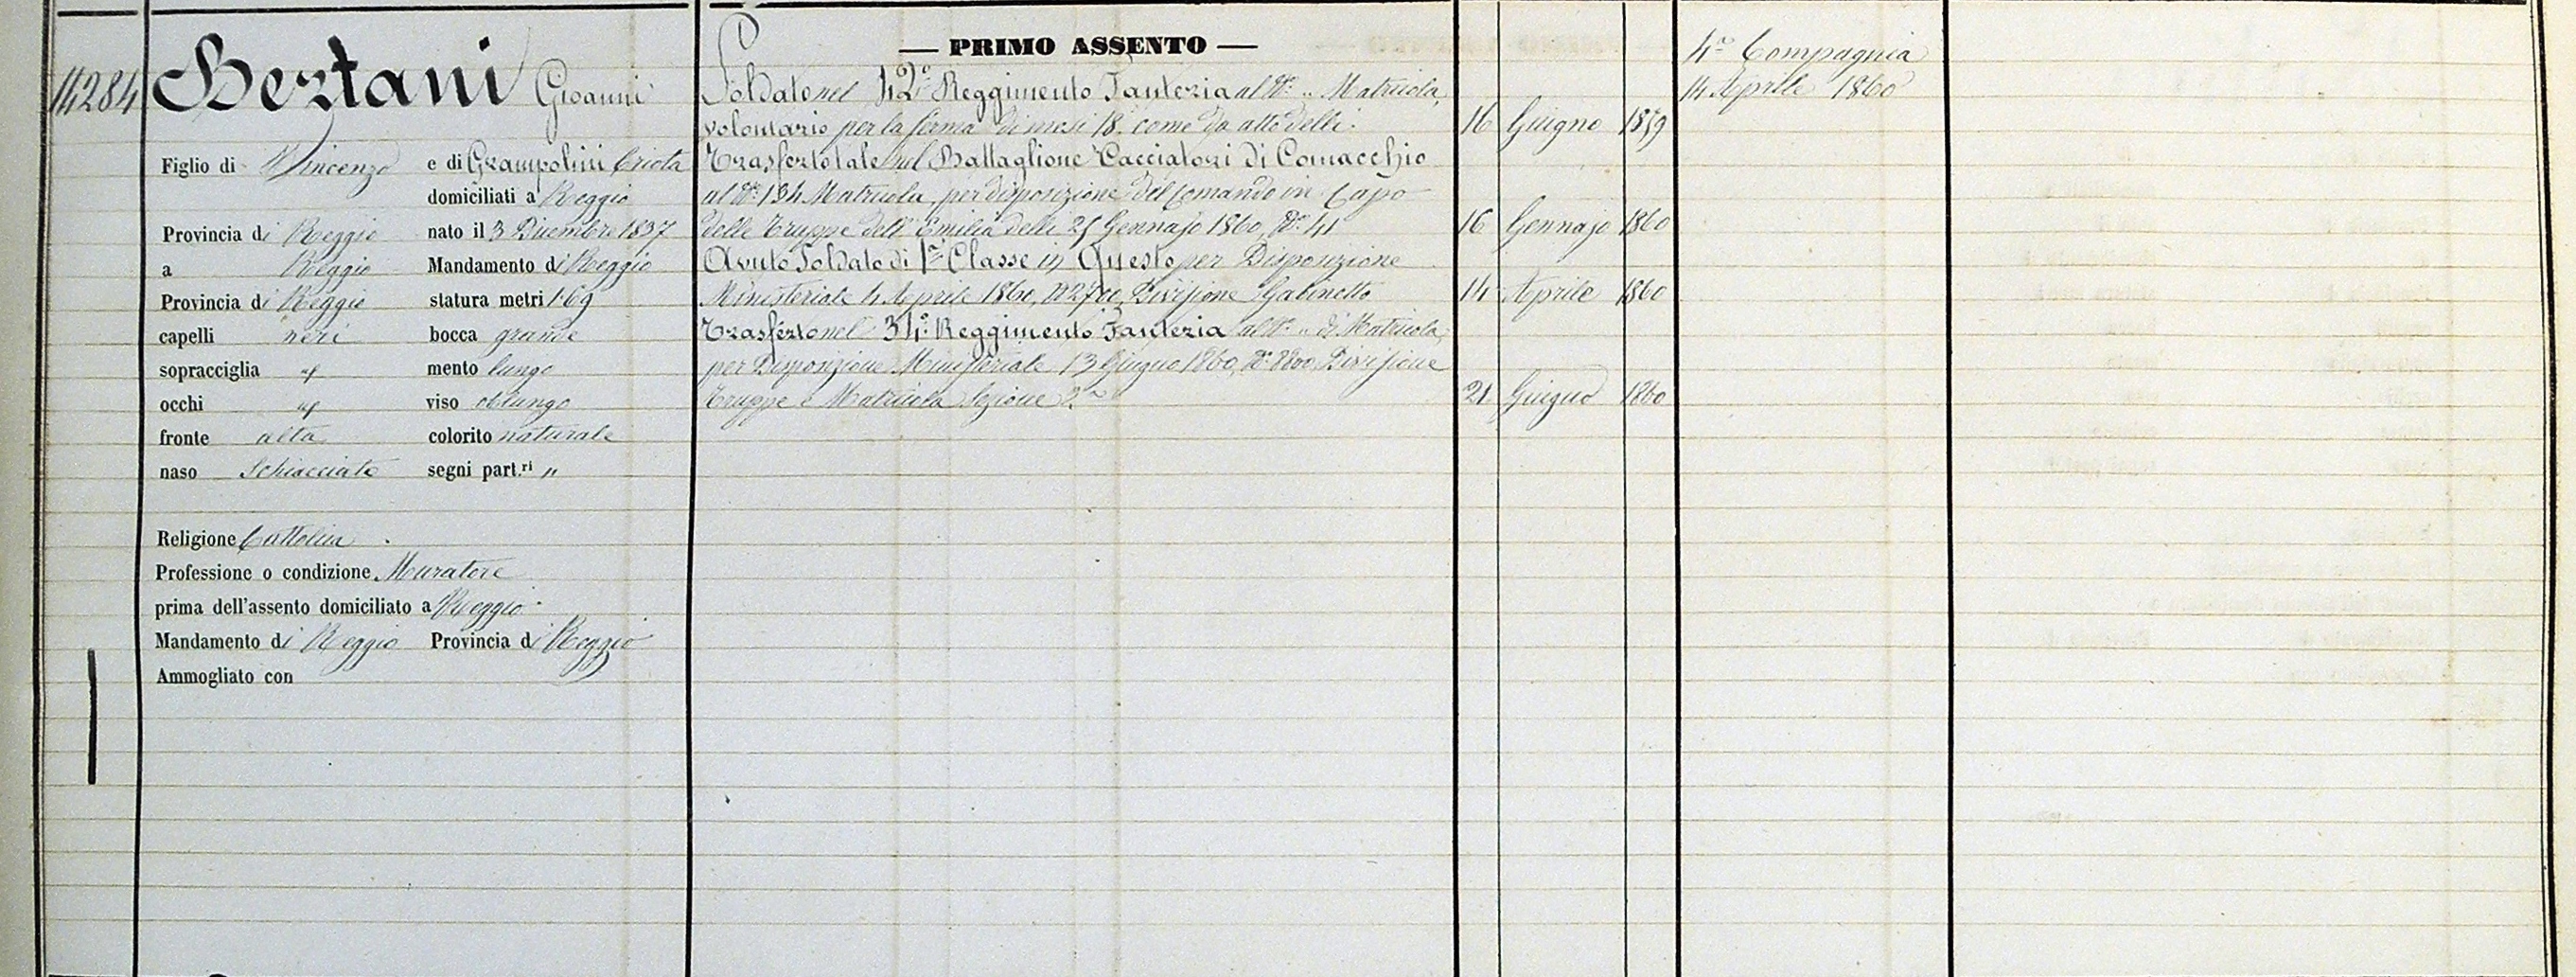 14284
Bertani Gioanni
Figlio di Vincenzo e di Grampolini
domiciliati a Reggio
Provincia di Reggio nato il 3 Dicembre 1837
a Reggio Mandamento di Reggio
Provincia di Reggio statura metri 1.69
capelli neri bocca grande
sopracciglia mento lungo
occhi viso oblungo
fronte alta colorito naturale
naso Schiacciato segni part.ri "
Religione Cattolica
Professione o condizione Muratore
prima dell'assento domiciliato a Reggio
Mandamento di Reggio Provincia di Reggio
Ammogliato con
— PRIMO ASSENTO —
Soldato nel 42º Reggimento Fanteria al Nº " Matricola,
volontario per la ferma di mesi 18. come da atto delli. 16 Giugno 1859
Trasferto tale nel Battaglione Cacciatori di Comacchio
al Nº 134 Matricola, per disposizione del Comando in Capo
delle Truppe dell'Emilia delli 25 Gennajo 1860, Nº 41 16 Gennajo 1860
Avuto Soldato di 1ª Classe in Questo per Disposizione
Ministeriale 4 Aprile 1860, Nº 2700, Divisione Gabinetto 14 Aprile 1860
Trasferto nel 34º Reggimento Fanteria al Nº " di Matricola,
per Disposizione Ministeriale 13 Giugno 1860, Nº 8800, Divisione
Truppe e Matricola Sezione 2ª 21 Giugno 1860
4ª Compagnia
14 Aprile 1860